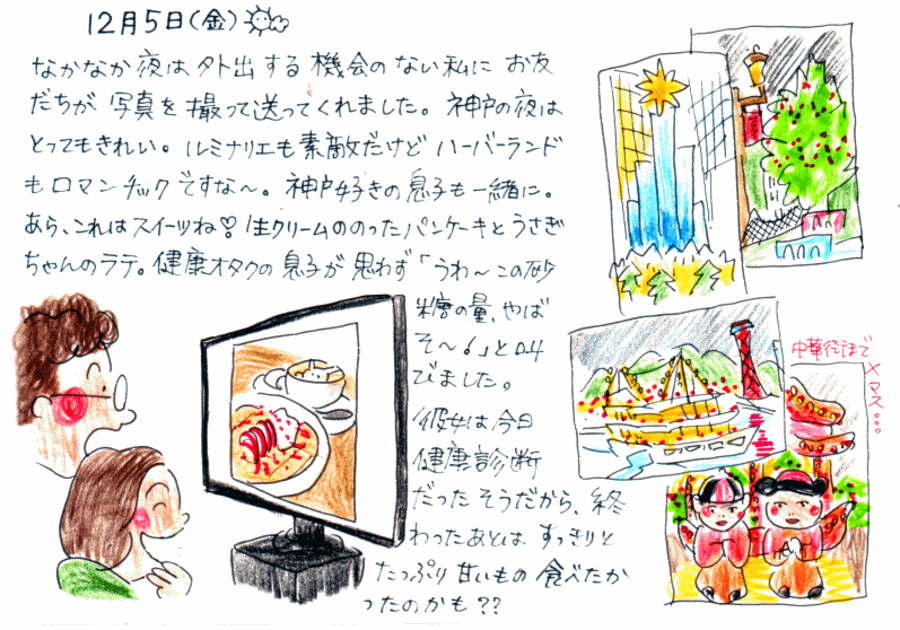 12月5日(金)
なかなか夜は外出する機会のない私に お友
だちが 写真を撮って送ってくれました。神戸の夜は
とってもきれい。ルミナリエも素敵だけど ハーバーランド
もロマンチックですな〜。神戸好きの息子も一緒に。
あら、これはスイーツね♡ 生クリームののったパンケーキとうさぎ
ちゃんのラテ。健康オタクの息子が 思わず「うわ〜この砂
糖の量、やば
そ〜!」と叫
びました。
彼女は今日
健康診断
だったそうだから、終
わったあとは すっきりと
たっぷり 甘いもの 食べたか
ったのかも??
中華街まで
Xマス...